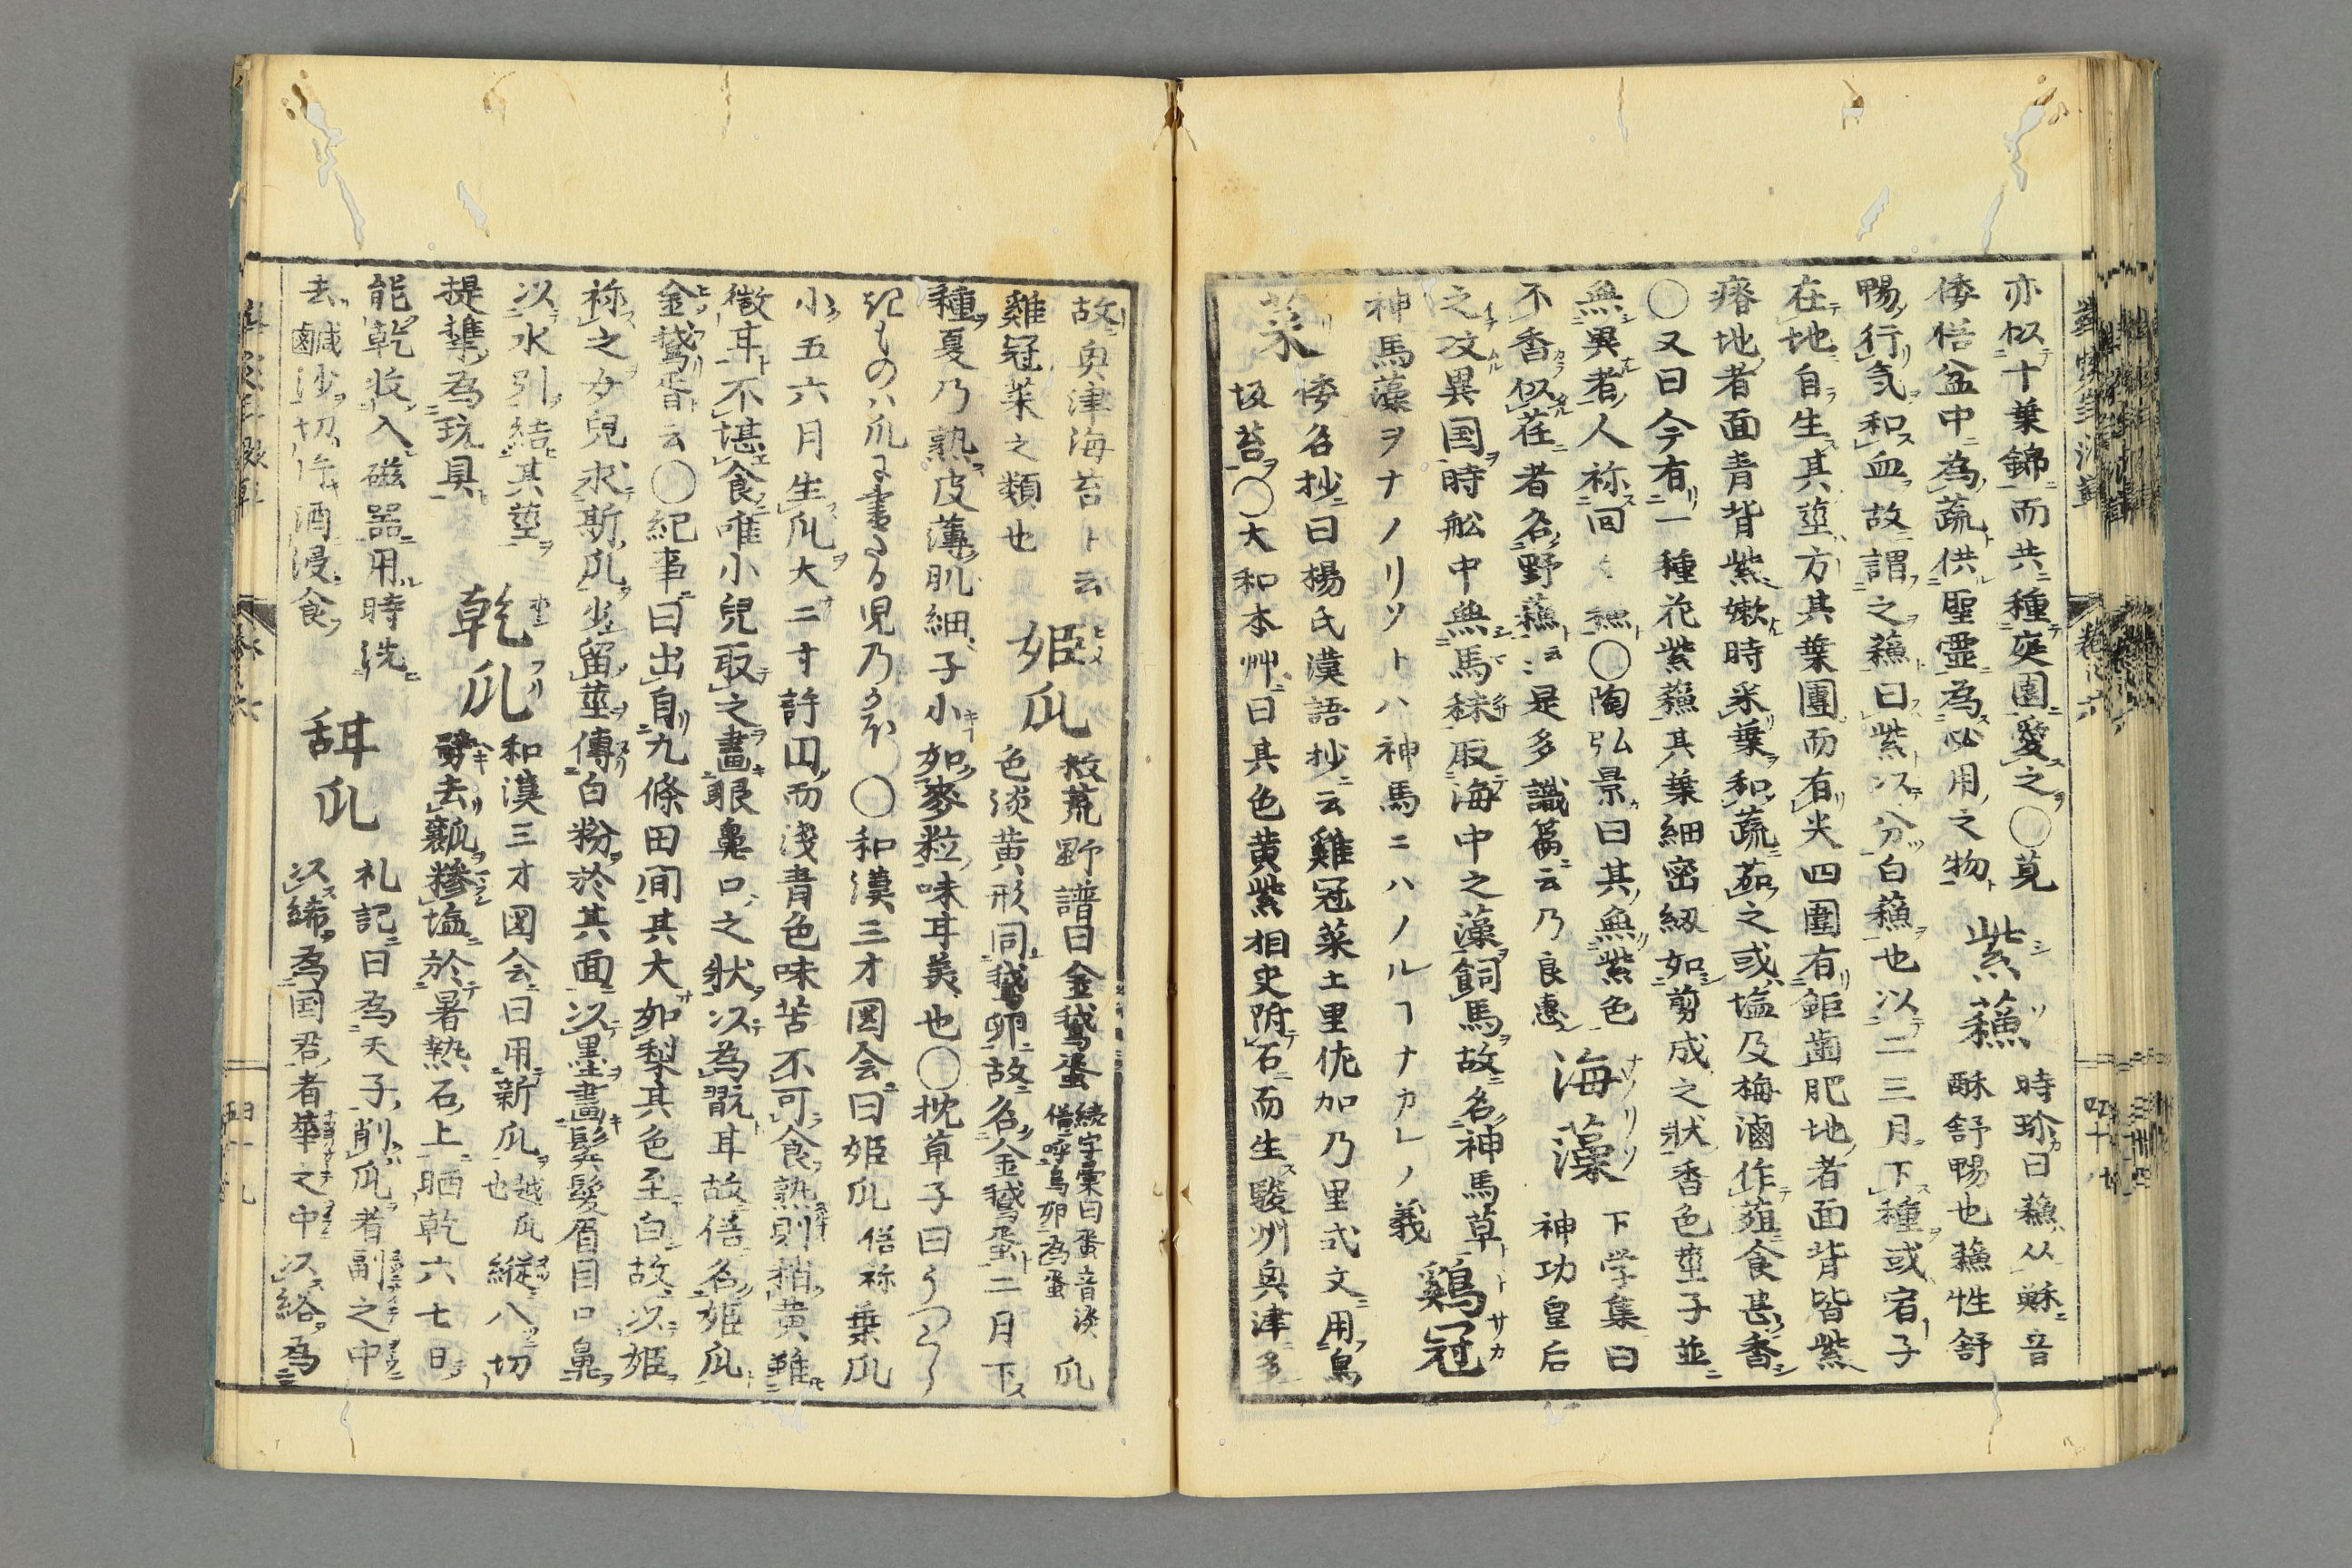 亦似十葉錦而共種庭園愛之〇莧
倭俗盆中為蔬供聖靈為必用之物 紫蘓 時珍曰蘓从穌音
酥舒暢也蘓性舒
暢行気和血故謂之蘓曰紫以分白蘓也以二三月下種或宿子
在地自生其莖方其葉團而有尖四圍有鉅歯肥地者面背皆紫
瘠地者面青背紫嫰時采葉和蔬茹之或塩及梅滷作菹食甚香
〇又曰今有一種花紫蘓其葉細密紉如剪成之狀香色莖子並
無異者人祢回々蘓〇陶弘景曰其無紫色
不香似荏者名野蘓云々是多識篇云乃良惠 海藻 ナノリソ 下学集曰
神功皇后
之攻異国時舩中無馬秣取海中之藻飼馬故名神馬草
神馬藻ヲナノリソトハ神馬ニハノルヿナカレノ義 鷄冠 トサカ
菜 倭名抄曰楊氏漢語抄云雞冠菜土里佐加乃里式文用鳥
坂苔〇大和本艸曰其色黄紫相史附石而生駿州奥津多
故奥津海苔ト云
雞冠菜之類也 姫瓜 ヒメ 救荒野譜曰金鵞蛋 続字彙曰蛋音淡
俗呼鳥卵為蛋 瓜
色淡黄形同鵞卵故名金鵞蛋二月下
種夏乃熟皮薄肌細子小如麥粒味耳美也〇枕草子曰うつくし
きものハ瓜に書たる児乃かほ〇和漢三才圖会曰姫瓜俗祢葉瓜
小五六月生瓜大二寸許囬而淺青色味苦不可食熟則稍黄雖
微耳不堪食唯小兒取之畫眼鼻口之狀以為翫耳故俗名姫瓜
金鵞香云〇紀事曰出自九條田間其大如梨其色至白故以姫
祢之女兒求斯瓜少留莖傳白粉於其面以墨畫髮髪眉目口鼻
以水引結其莖
提携為玩具 乾瓜 ホシフリ 和漢三才図会曰用新瓜 越瓜也 縦八切
劈去瓤糝塩於暑熱石上晒乾六七日
能乾收入磁器用時洗
去鹹沙切片酒浸食 㽏瓜 礼記曰為天子削瓜者副之巾
以絺為国君者華之巾以綌為